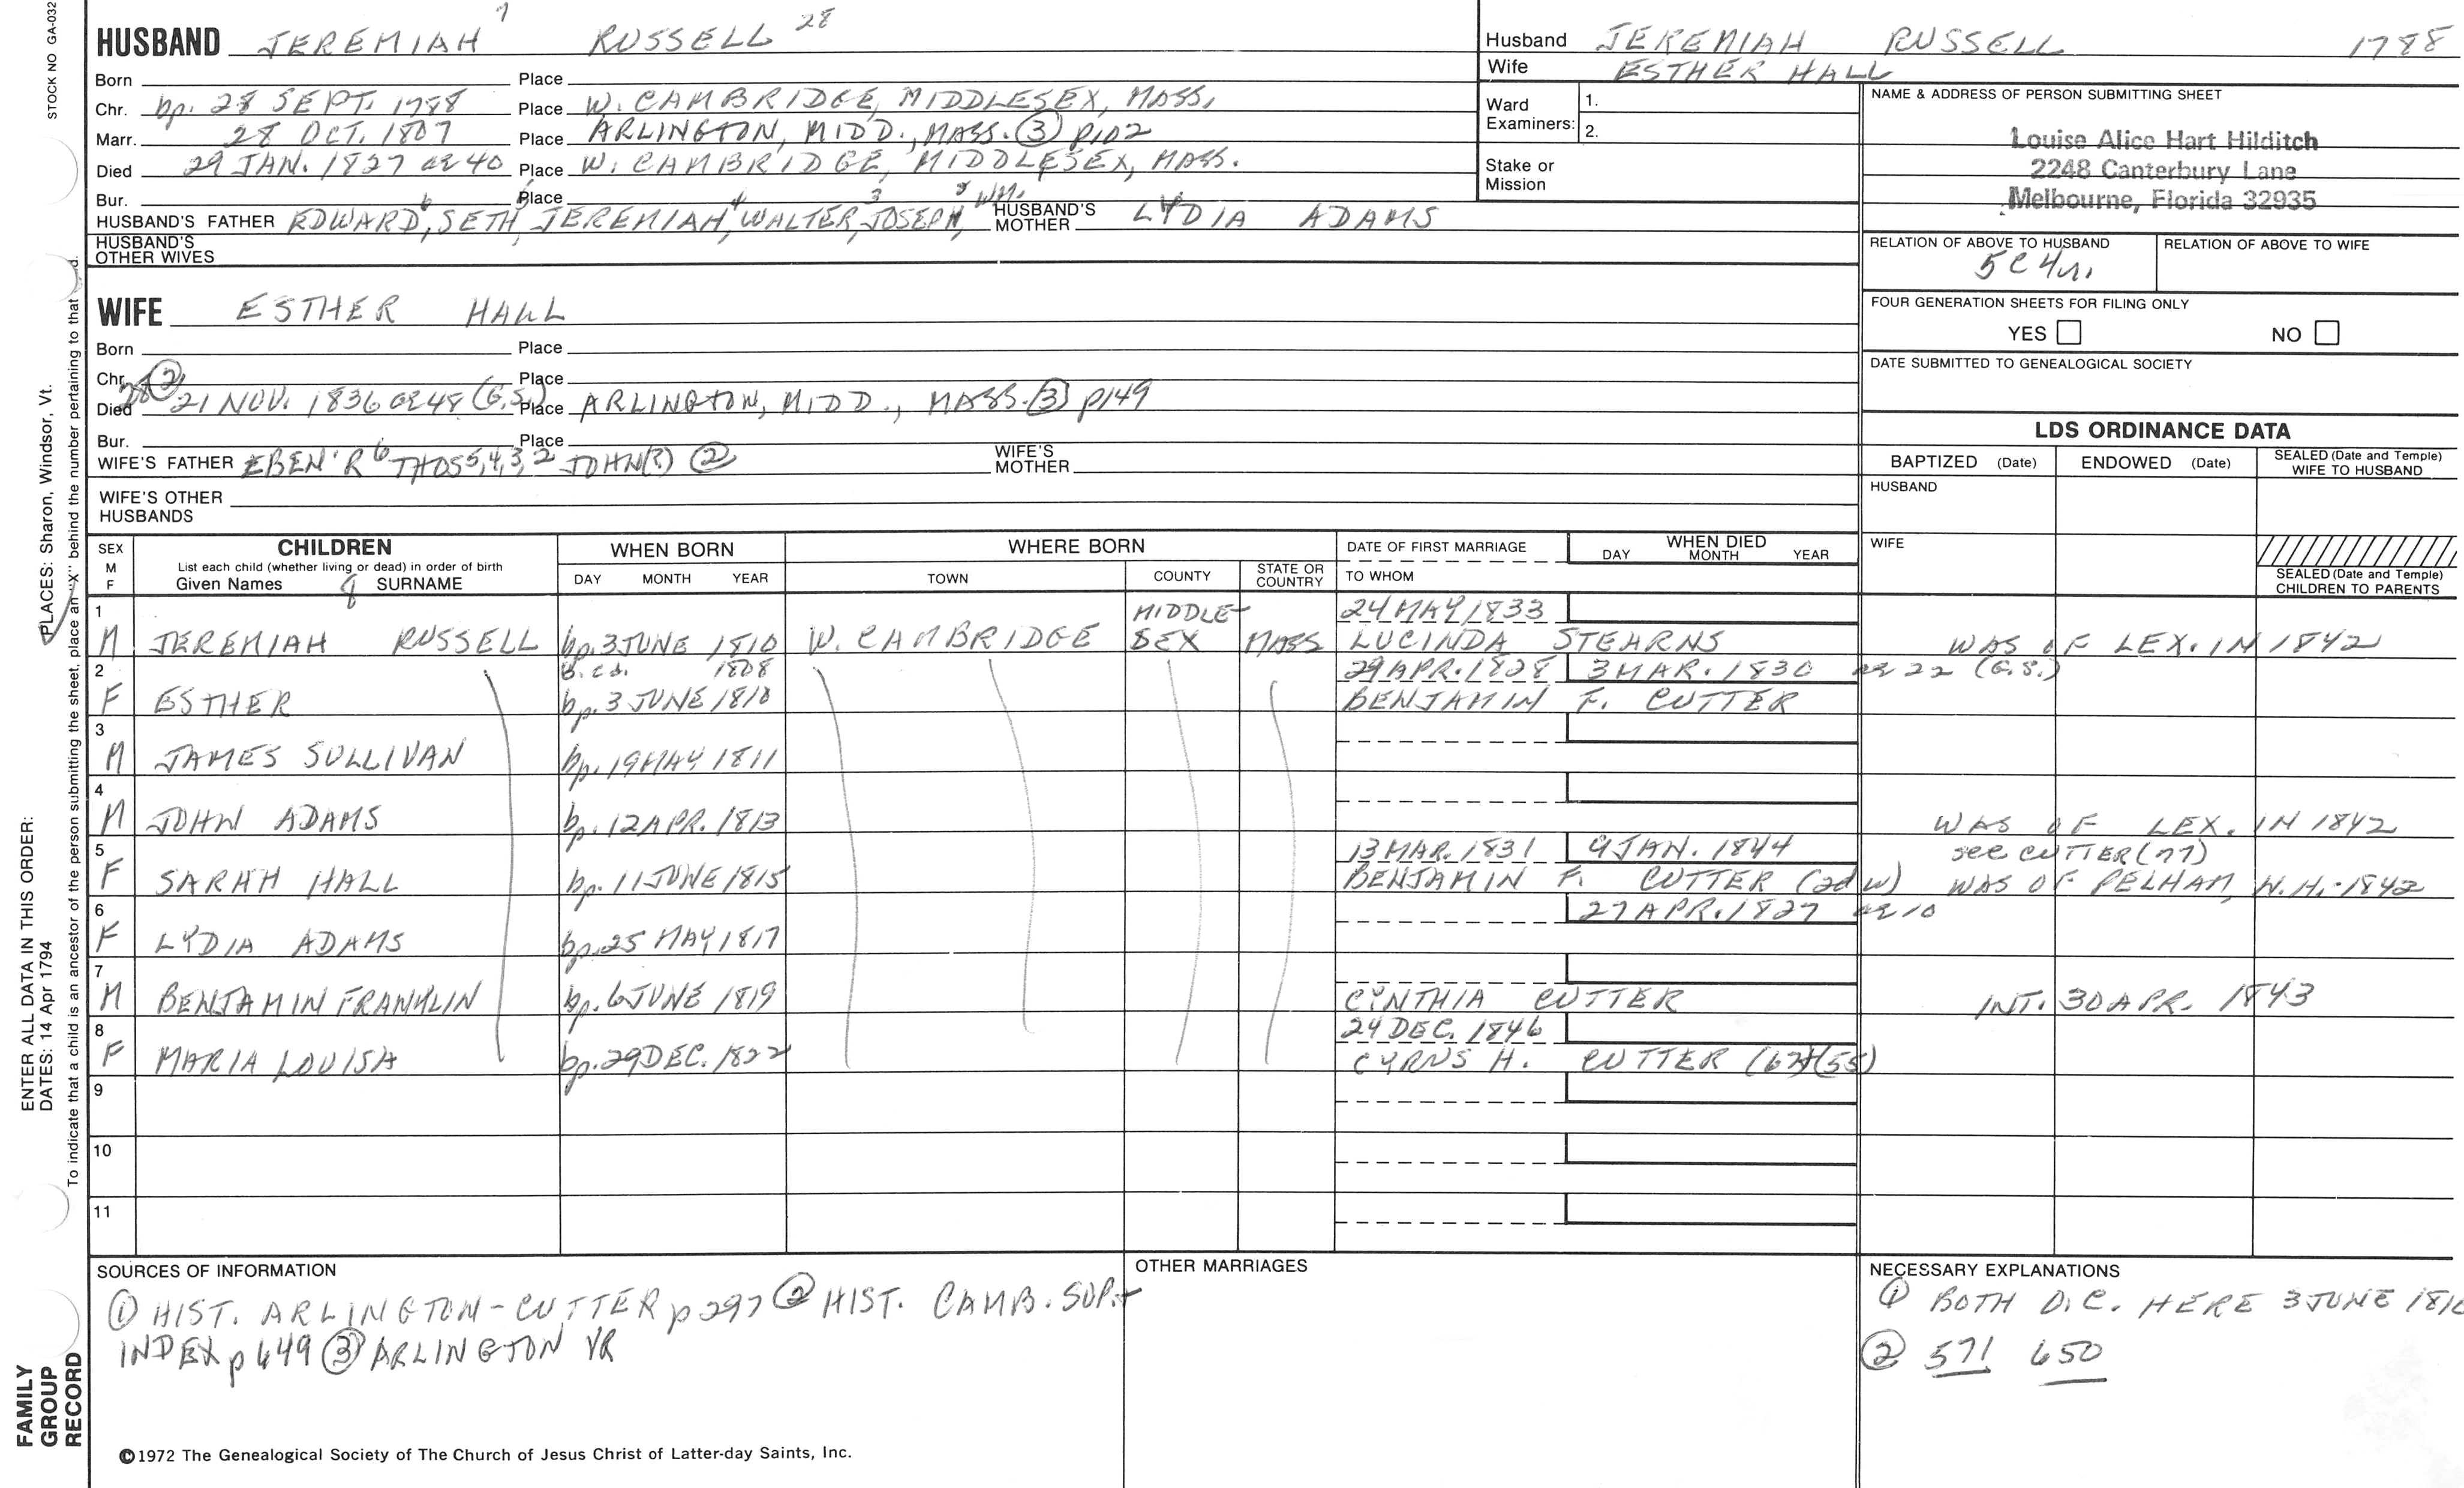 STOCK NO GA-032
7 28
HUSBAND JEREMIAH RUSSELL
Born Place
Chr. bp. 28 SEPT. 1788 Place W. CAMBRIDGE, MIDDLESEX, MASS.
Marr. 28 OCT. 1807 Place ARLINGTON, MIDD., MASS. (3) p102
Died 29 JAN. 1827 ae 40 Place W. CAMBRIDGE, MIDDLESEX, MASS.
Bur. Place
HUSBAND'S FATHER EDWARD 6, SETH 5, JEREMIAH 4, WALTER, JOSEPH 3, WM. 2 HUSBAND'S MOTHER LYDIA ADAMS
HUSBAND'S OTHER WIVES
Husband JEREMIAH RUSSELL 1788
Wife ESTHER HALL
Ward Examiners: 1.
2.
Stake or Mission
NAME & ADDRESS OF PERSON SUBMITTING SHEET
Louise Alice Hart Hilditch
2248 Canterbury Lane
Melbourne, Florida 32935
RELATION OF ABOVE TO HUSBAND RELATION OF ABOVE TO WIFE
5C4r.
FOUR GENERATION SHEETS FOR FILING ONLY
YES NO
DATE SUBMITTED TO GENEALOGICAL SOCIETY
WIFE ESTHER HALL
Born Place
Chr. Place
Died 28 (2) 21 NOV. 1836 ae 48 (G.S.) Place ARLINGTON, MIDD., MASS. (3) p149
Bur. Place
WIFE'S FATHER EBEN'R 6 THOS 5,4,3,2 JOHN(?) (2) WIFE'S MOTHER
WIFE'S OTHER HUSBANDS
LDS ORDINANCE DATA
BAPTIZED (Date) ENDOWED (Date) SEALED (Date and Temple) WIFE TO HUSBAND
HUSBAND
WIFE
SEALED (Date and Temple) CHILDREN TO PARENTS
SEX M F CHILDREN WHEN BORN WHERE BORN DATE OF FIRST MARRIAGE WHEN DIED
List each child (whether living or dead) in order of birth DAY MONTH YEAR
Given Names 8 SURNAME DAY MONTH YEAR TOWN COUNTY STATE OR COUNTRY TO WHOM
1 MIDDLE- 24 MAY 1833
M JEREMIAH RUSSELL bp. 3 JUNE 1810 W. CAMBRIDGE SEX MASS LUCINDA STEARNS WAS OF LEX. IN 1842
2 B. cd. 1808 29 APR. 1828 3 MAR. 1830 ae 22 (G.S.)
F ESTHER bp. 3 JUNE 1810 BENJAMIN F. CUTTER
3
M JAMES SULLIVAN bp. 19 MAY 1811
4
M JOHN ADAMS bp. 12 APR. 1813 WAS OF LEX. IN 1842
5 13 MAR. 1831 9 JAN. 1844 see CUTTER (77)
F SARAH HALL bp. 11 JUNE 1815 BENJAMIN F. CUTTER (2d w) WAS OF PELHAM, N.H. - 1842
6 27 APR. 1827 ae 10
F LYDIA ADAMS bp. 25 MAY 1817
7
M BENJAMIN FRANKLIN bp. 6 JUNE 1819 CYNTHIA CUTTER INT. 30 APR. 1843
8 24 DEC. 1846
F MARIA LOUISA bp. 29 DEC. 1822 CYRNS H. CUTTER (55)
9
10
11
SOURCES OF INFORMATION
(1) HIST. ARLINGTON - CUTTER p 297 (2) HIST. CAMB. SUP.+
INDEX p 649 (3) ARLINGTON VR
OTHER MARRIAGES
NECESSARY EXPLANATIONS
(1) BOTH O.C. HERE 3 JUNE 1810
(2) 571 650
©1972 The Genealogical Society of The Church of Jesus Christ of Latter-day Saints, Inc.
FAMILY GROUP RECORD
ENTER ALL DATA IN THIS ORDER:
DATES: 14 Apr 1794
PLACES: Sharon, Windsor, Vt.
To indicate that a child is an ancestor of the person submitting the sheet, place an "X" behind the number pertaining to that